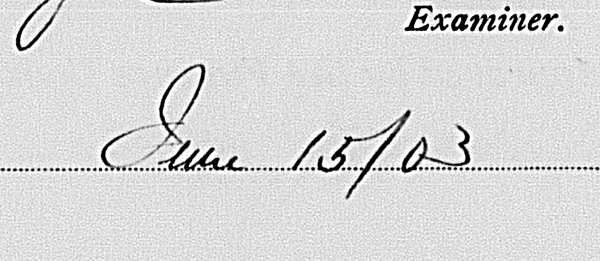 Examiner.
June 15/03